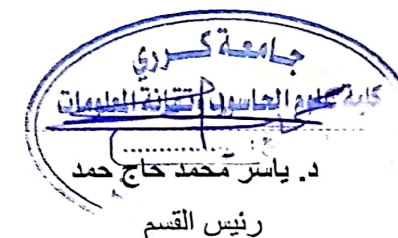 جامعة كرري
كلية علوم الحاسوب وتقانة المعلومات
د. ياسر محمد حاج حمد
رئيس القسم